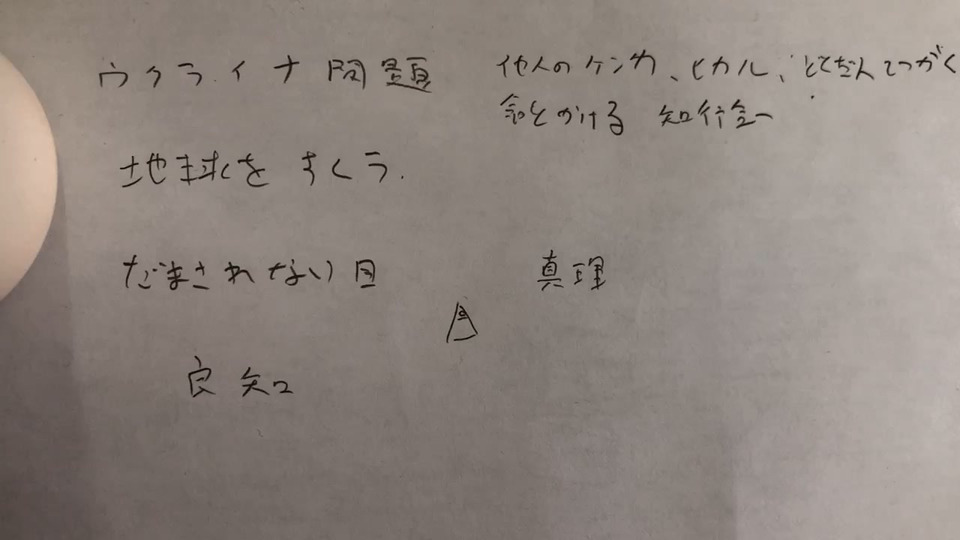 ウクライナ問題
他人のケンカ、ヒカル、とくだんてつがく
念をかける 知行合一
地球をすくう.
だまされない目
真理
良知